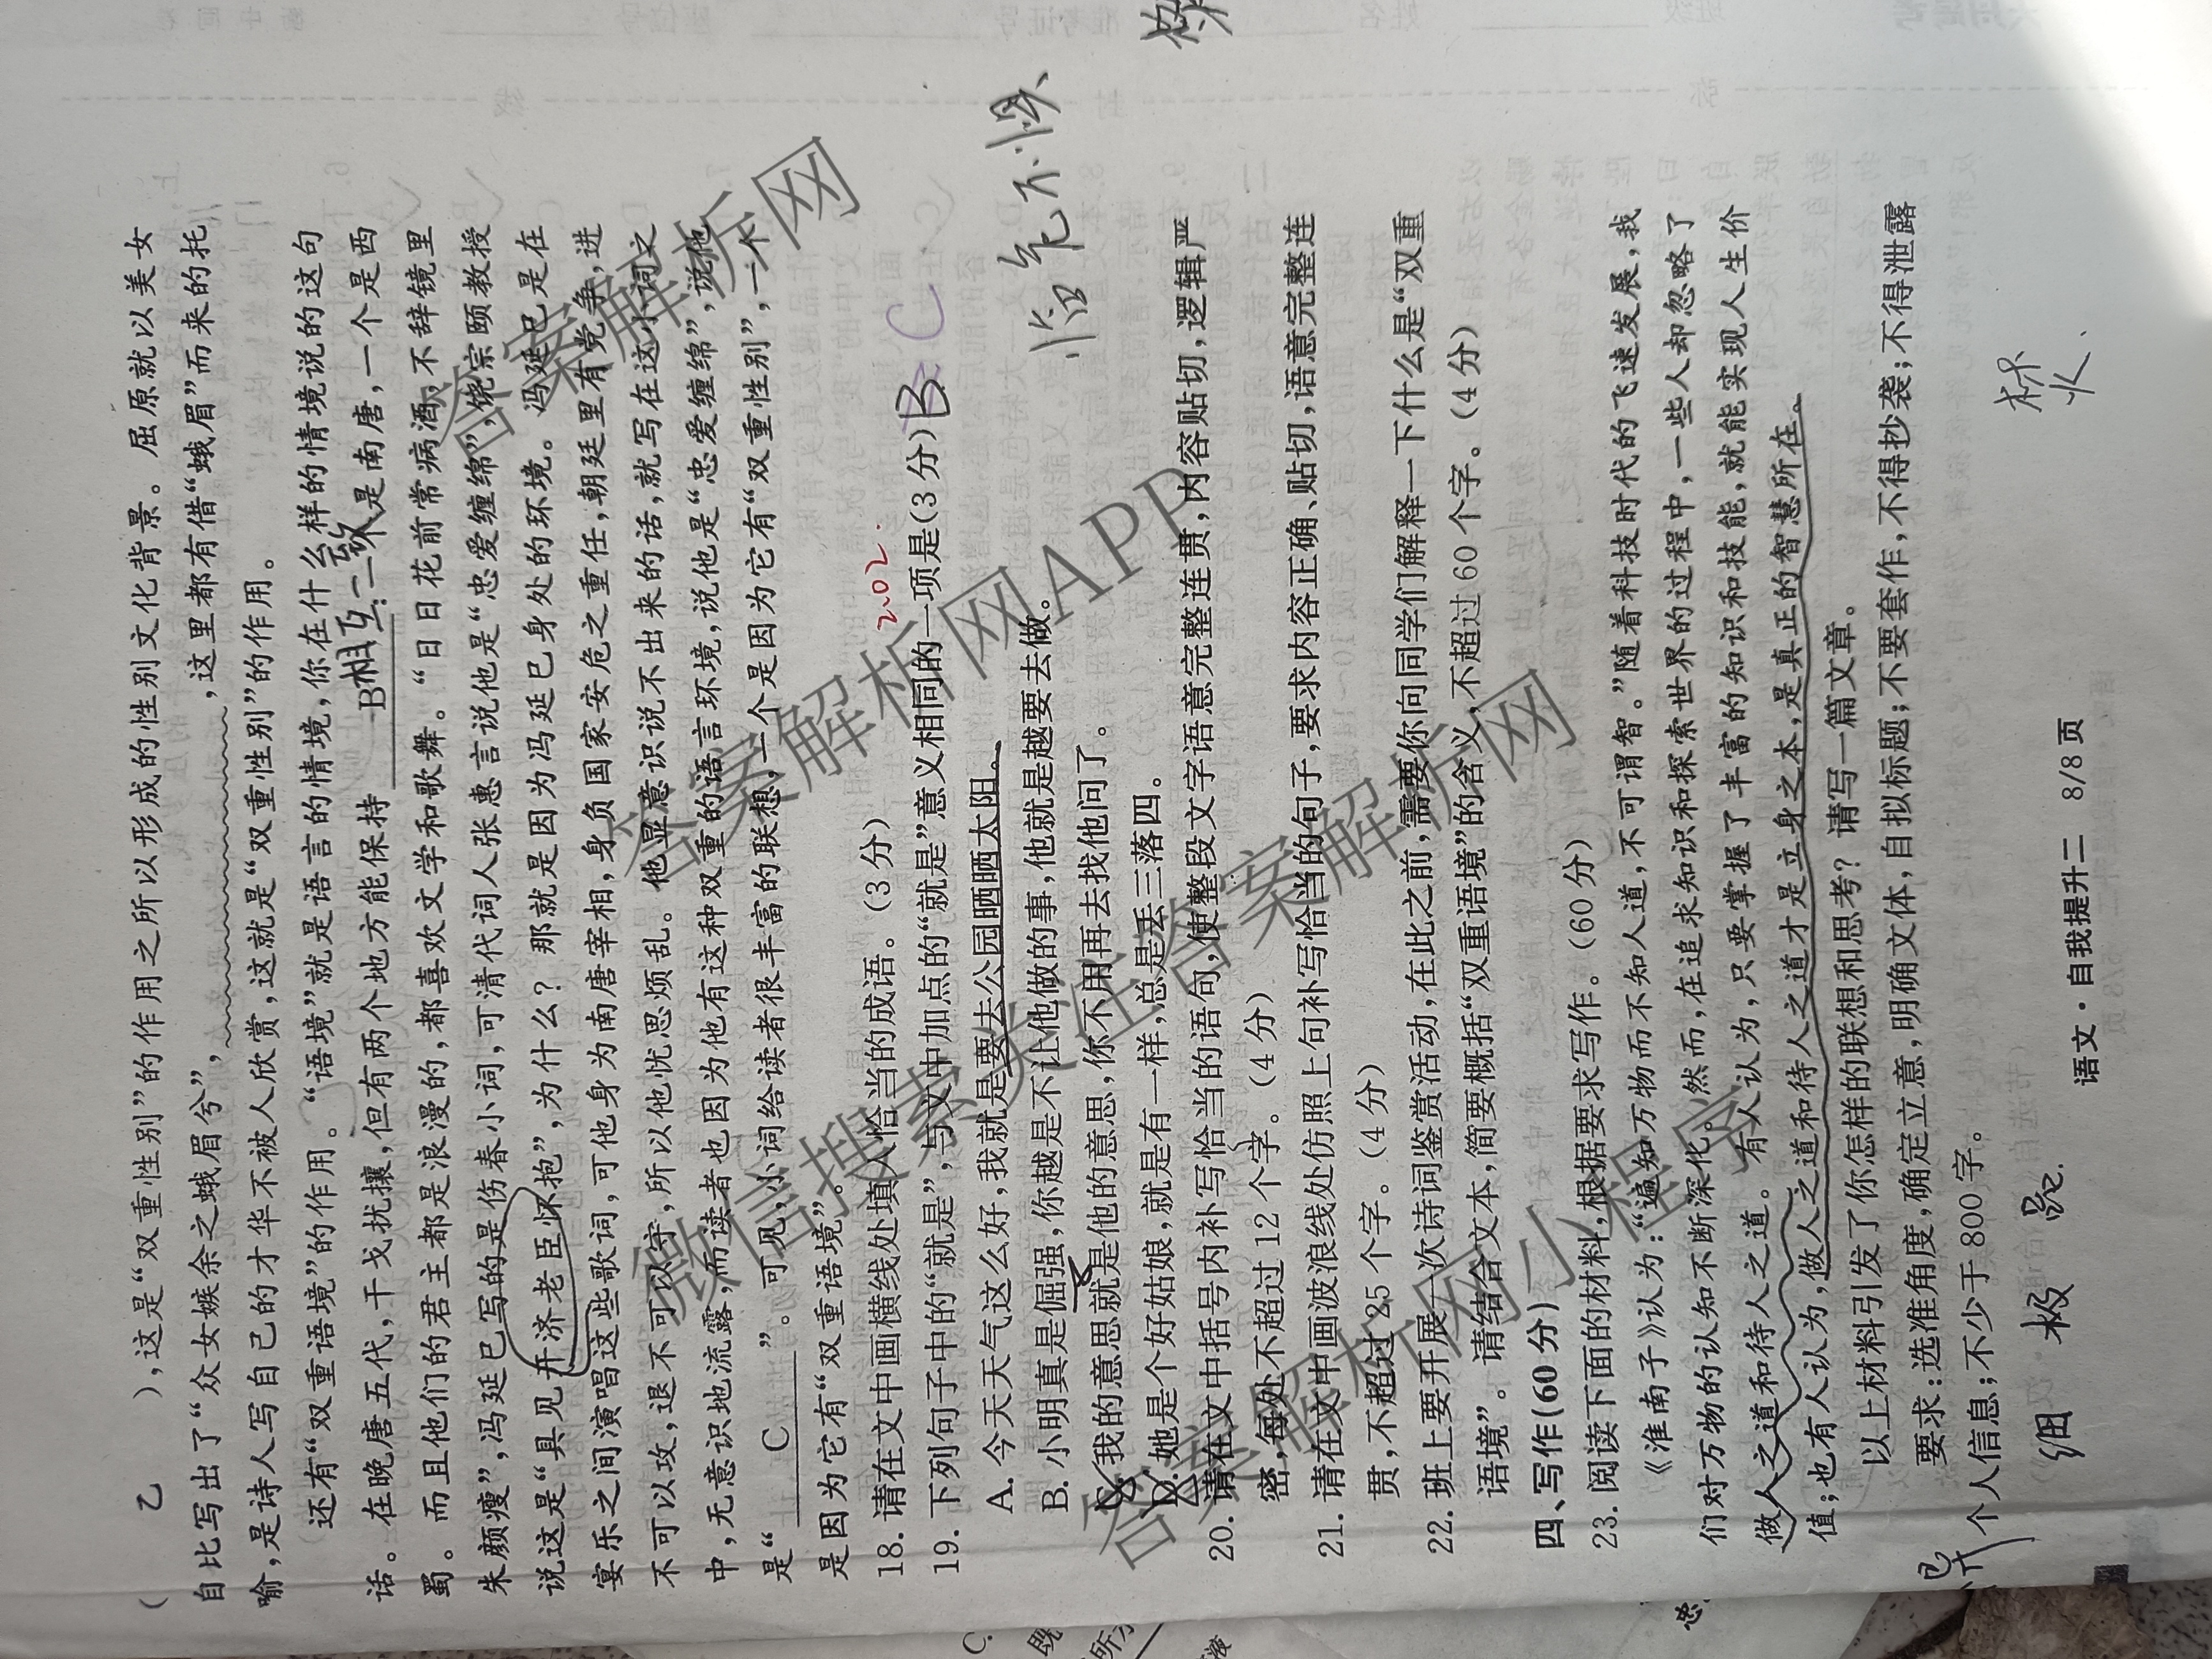 （　　乙　　），这是“双重性别”的作用之所以形成的性别文化背景。屈原就以美女
自比写出了“众女嫉余之蛾眉兮”，　　　　，这里都有借“蛾眉”而来的托
喻，是诗人写自己的才华不被人欣赏，这就是“双重性别”的作用。
还有“双重语境”的作用。“语境”就是语言的情境，你在什么样的情境说的这句
话。在晚唐五代，干戈扰攘，但有两个地方能保持　B　：一个是南唐，一个是西
相互 一致
蜀。而且他们的君主都是浪漫的，都喜欢文学和歌舞。“日日花前常病酒，不辞镜里
朱颜瘦”，冯延巳写的是伤春小词，可清代词人张惠言说他是“忠爱缠绵”，饶宗颐教授
说这是“具见开济老臣怀抱”，为什么？那就是因为冯延巳身处的环境。冯延巳是在
宴乐之间演唱这些歌词，可他身为南唐宰相，身负国家安危之重任，朝廷里有党争，进
不可以攻，退不可以守，所以他忧思烦乱。他显意识说不出来的话，就写在这小词之
中，无意识地流露，而读者也因为他有这种双重的语言环境，说他是“忠爱缠绵”，说他
是“　C　”。可见，小词给读者很丰富的联想，一个是因为它有“双重性别”，一个
是因为它有“双重语境”。
18. 请在文中画横线处填入恰当的成语。（3 分）
19. 下列句子中的“就是”，与文中加点的“就是”意义相同的一项是（3 分） B
C
A. 今天天气这么好，我就是要去公园晒晒太阳。
B. 小明真是倔强，你越是不让他做的事，他就是越要去做。
C. 我的意思就是他的意思，你不用再去找他问了。
D. 她是个好姑娘，就是有一样，总是丢三落四。
20. 请在文中括号内补写恰当的语句，使整段文字语意完整连贯，内容贴切，逻辑严
密，每处不超过 12 个字。（4 分）
21. 请在文中画波浪线处仿照上句补写恰当的句子，要求内容正确、贴切，语意完整连
贯，不超过 25 个字。（4 分）
22. 班上要开展一次诗词鉴赏活动，在此之前，需要你向同学们解释一下什么是“双重
语境”。请结合文本，简要概括“双重语境”的含义，不超过 60 个字。（4 分）
四、写作（60 分）
23. 阅读下面的材料，根据要求写作。（60 分）
《淮南子》认为：“遍知万物而不知人道，不可谓智。”随着科技时代的飞速发展，我
们对万物的认知不断深化。然而，在追求知识和探索世界的过程中，一些人却忽略了
做人之道和待人之道。有人认为，只要掌握了丰富的知识和技能，就能实现人生价
值；也有人认为，做人之道和待人之道才是立身之本，是真正的智慧所在。
以上材料引发了你怎样的联想和思考？请写一篇文章。
要求：选准角度，确定立意，明确文体，自拟标题；不要套作，不得抄袭；不得泄露
个人信息；不少于 800 字。
语文·自我提升二　8/8 页
答案解析网
答案解析网APP
微信搜索关注答案解析网
答案解析网小程序